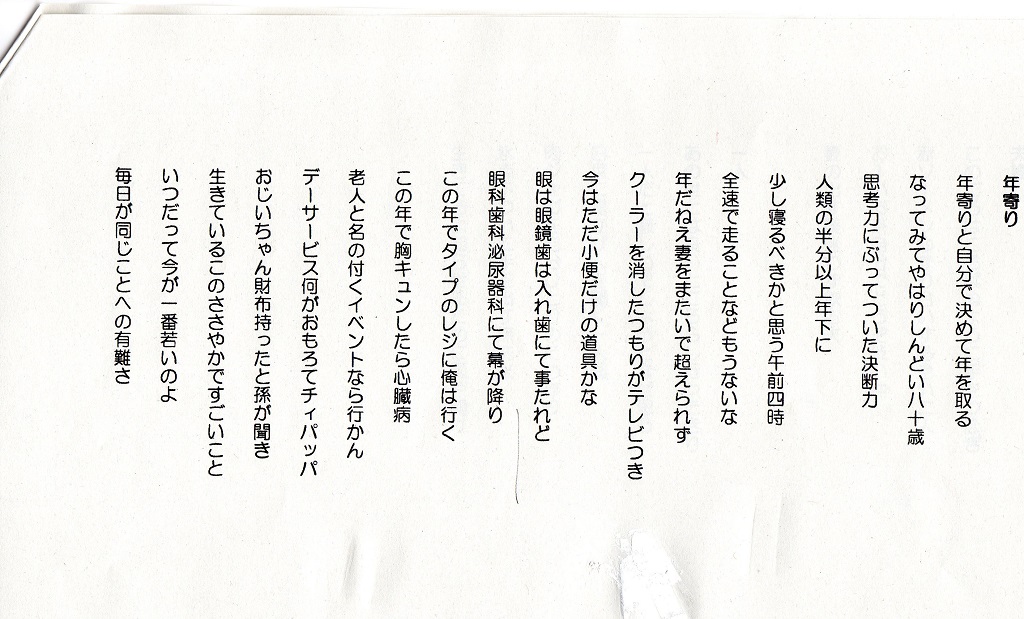 年寄り
年寄りと自分で決めて年を取る
なってみてやはりしんどい八十歳
思考力にぶってついた決断力
人類の半分以上年下に
少し寝るべきかと思う午前四時
全速で走ることなどもうないな
年だねえ妻をまたいで超えられず
クーラーを消したつもりがテレビつき
今はただ小便だけの道具かな
眼は眼鏡歯は入れ歯にて事たれど
眼科歯科泌尿器科にて幕が降り
この年でタイプのレジに俺は行く
この年で胸キュンしたら心臓病
老人と名の付くイベントなら行かん
デーサービス何がおもろてチィパッパ
おじいちゃん財布持ったと孫が聞き
生きているこのささやかですごいこと
いつだって今が一番若いのよ
毎日が同じことへの有難さ